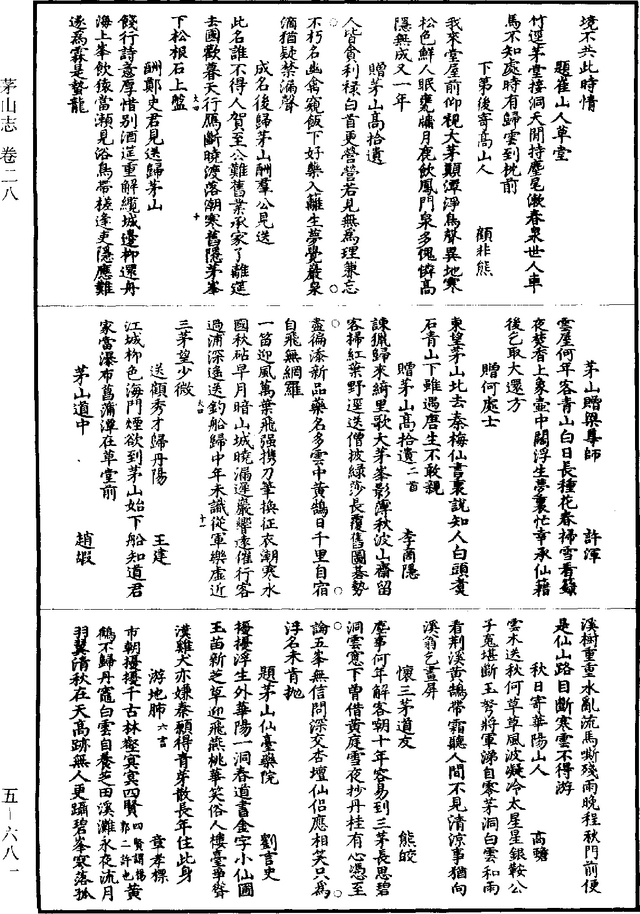 境不共此時情
題崔山人草堂
竹逕茅堂接洞天閒持麈尾漱春泉世人車
馬不知處時有歸雲到枕前
下第後寄高山人　顧非熊
我來堂屋前仰視大茅顛潭淨鳥聲異地寒
松色鮮人眠甕牖月鹿飲鳳門泉多愧僻高
隱無成又一年
贈茅山高拾遺
人皆貪利祿白首更營營若見無爲理兼忘
不朽名幽禽窺飯下好藥入籬生夢覺巖泉
滴猶疑禁漏聲
成名後歸茅山酬羣公見送
此名誰不得人賀至公難舊業承家了離筵
去國歡暮天行鴈斷曉渡落潮寒舊隱茅峯
下松根石上盤
酬鄭史君見送歸茅山
餞行詩意厚惜别酒筵重解纜城邊柳還舟
海上峯飲猿當瀬見浴鳥帶槎逢吏隱應難
遂爲霖是蟄龍
茅山贈梁尊師　許渾
雲屋何年客青山白日長種花春掃雪看籙
夜焚香上象壺中闊浮生夢裏忙幸承仙籍
後乞取大還方
贈何處士
東望茅山北去秦梅仙書裏說知人白頭賣
石青山下雖遇唐生不敢親
贈茅山高拾遺二首　李商隱
諫獵歸來綺里歌大茅峯影薄秋波山齋留
客掃紅葉野逕送僧披緑莎長覆舊圖棊勢
盡徧添新品藥名多雲中黃鵠日千里自宿
自飛無網羅
一笛迎風萬葉飛强携刀筆換征衣潮寒水
國秋砧早月暗山城曉漏遲巖響遠催行客
過浦深遥送釣船歸中年未識從軍樂虛近
三茅望少微
送顧秀才歸丹陽　王建
江城柳色海門煙欲到茅山始下船知道君
家當瀑布菖蒲潭在草堂前
茅山道中　趙嘏
溪樹重重水亂流馬嘶殘雨晚程秋門前便
是仙山路目斷寒雲不得游
秋日寄華陽山人　高蟾
雲木送秋何草草風波凝冷太星星銀鞍公
子䰟堪斷玉弩將軍涕自零茅洞白雲和雨
看荆溪黃鵠帶霜聽人間不見清涼事猶向
溪翁乞畫屏
懷三茅道友　熊皎
塵事何年解客嘲十年容易到三茅長思碧
洞雲窓下曽借黃庭雪夜抄丹桂有心憑至
論五峯無信問深交杏壇仙侶應相笑只爲
浮名未肯抛
題茅山仙臺藥院　劉言史
擾擾浮生外華陽一洞春道書金字小仙圃
玉苗新芝草迎飛燕桃華笑俗人樓臺爭聳
漢雞犬亦嫌秦願得青芽散長年住此身
游地肺六言　章孝標
市朝擾擾千古林壑㝠㝠四賢四賢謂楊郭二許也黃
鶴不歸丹竈白雲自養芝田溪灘永夜流月
羽翼清秋在天高跡無人更躡碧峯寒落孤
茅山志　卷二八
五—六八一